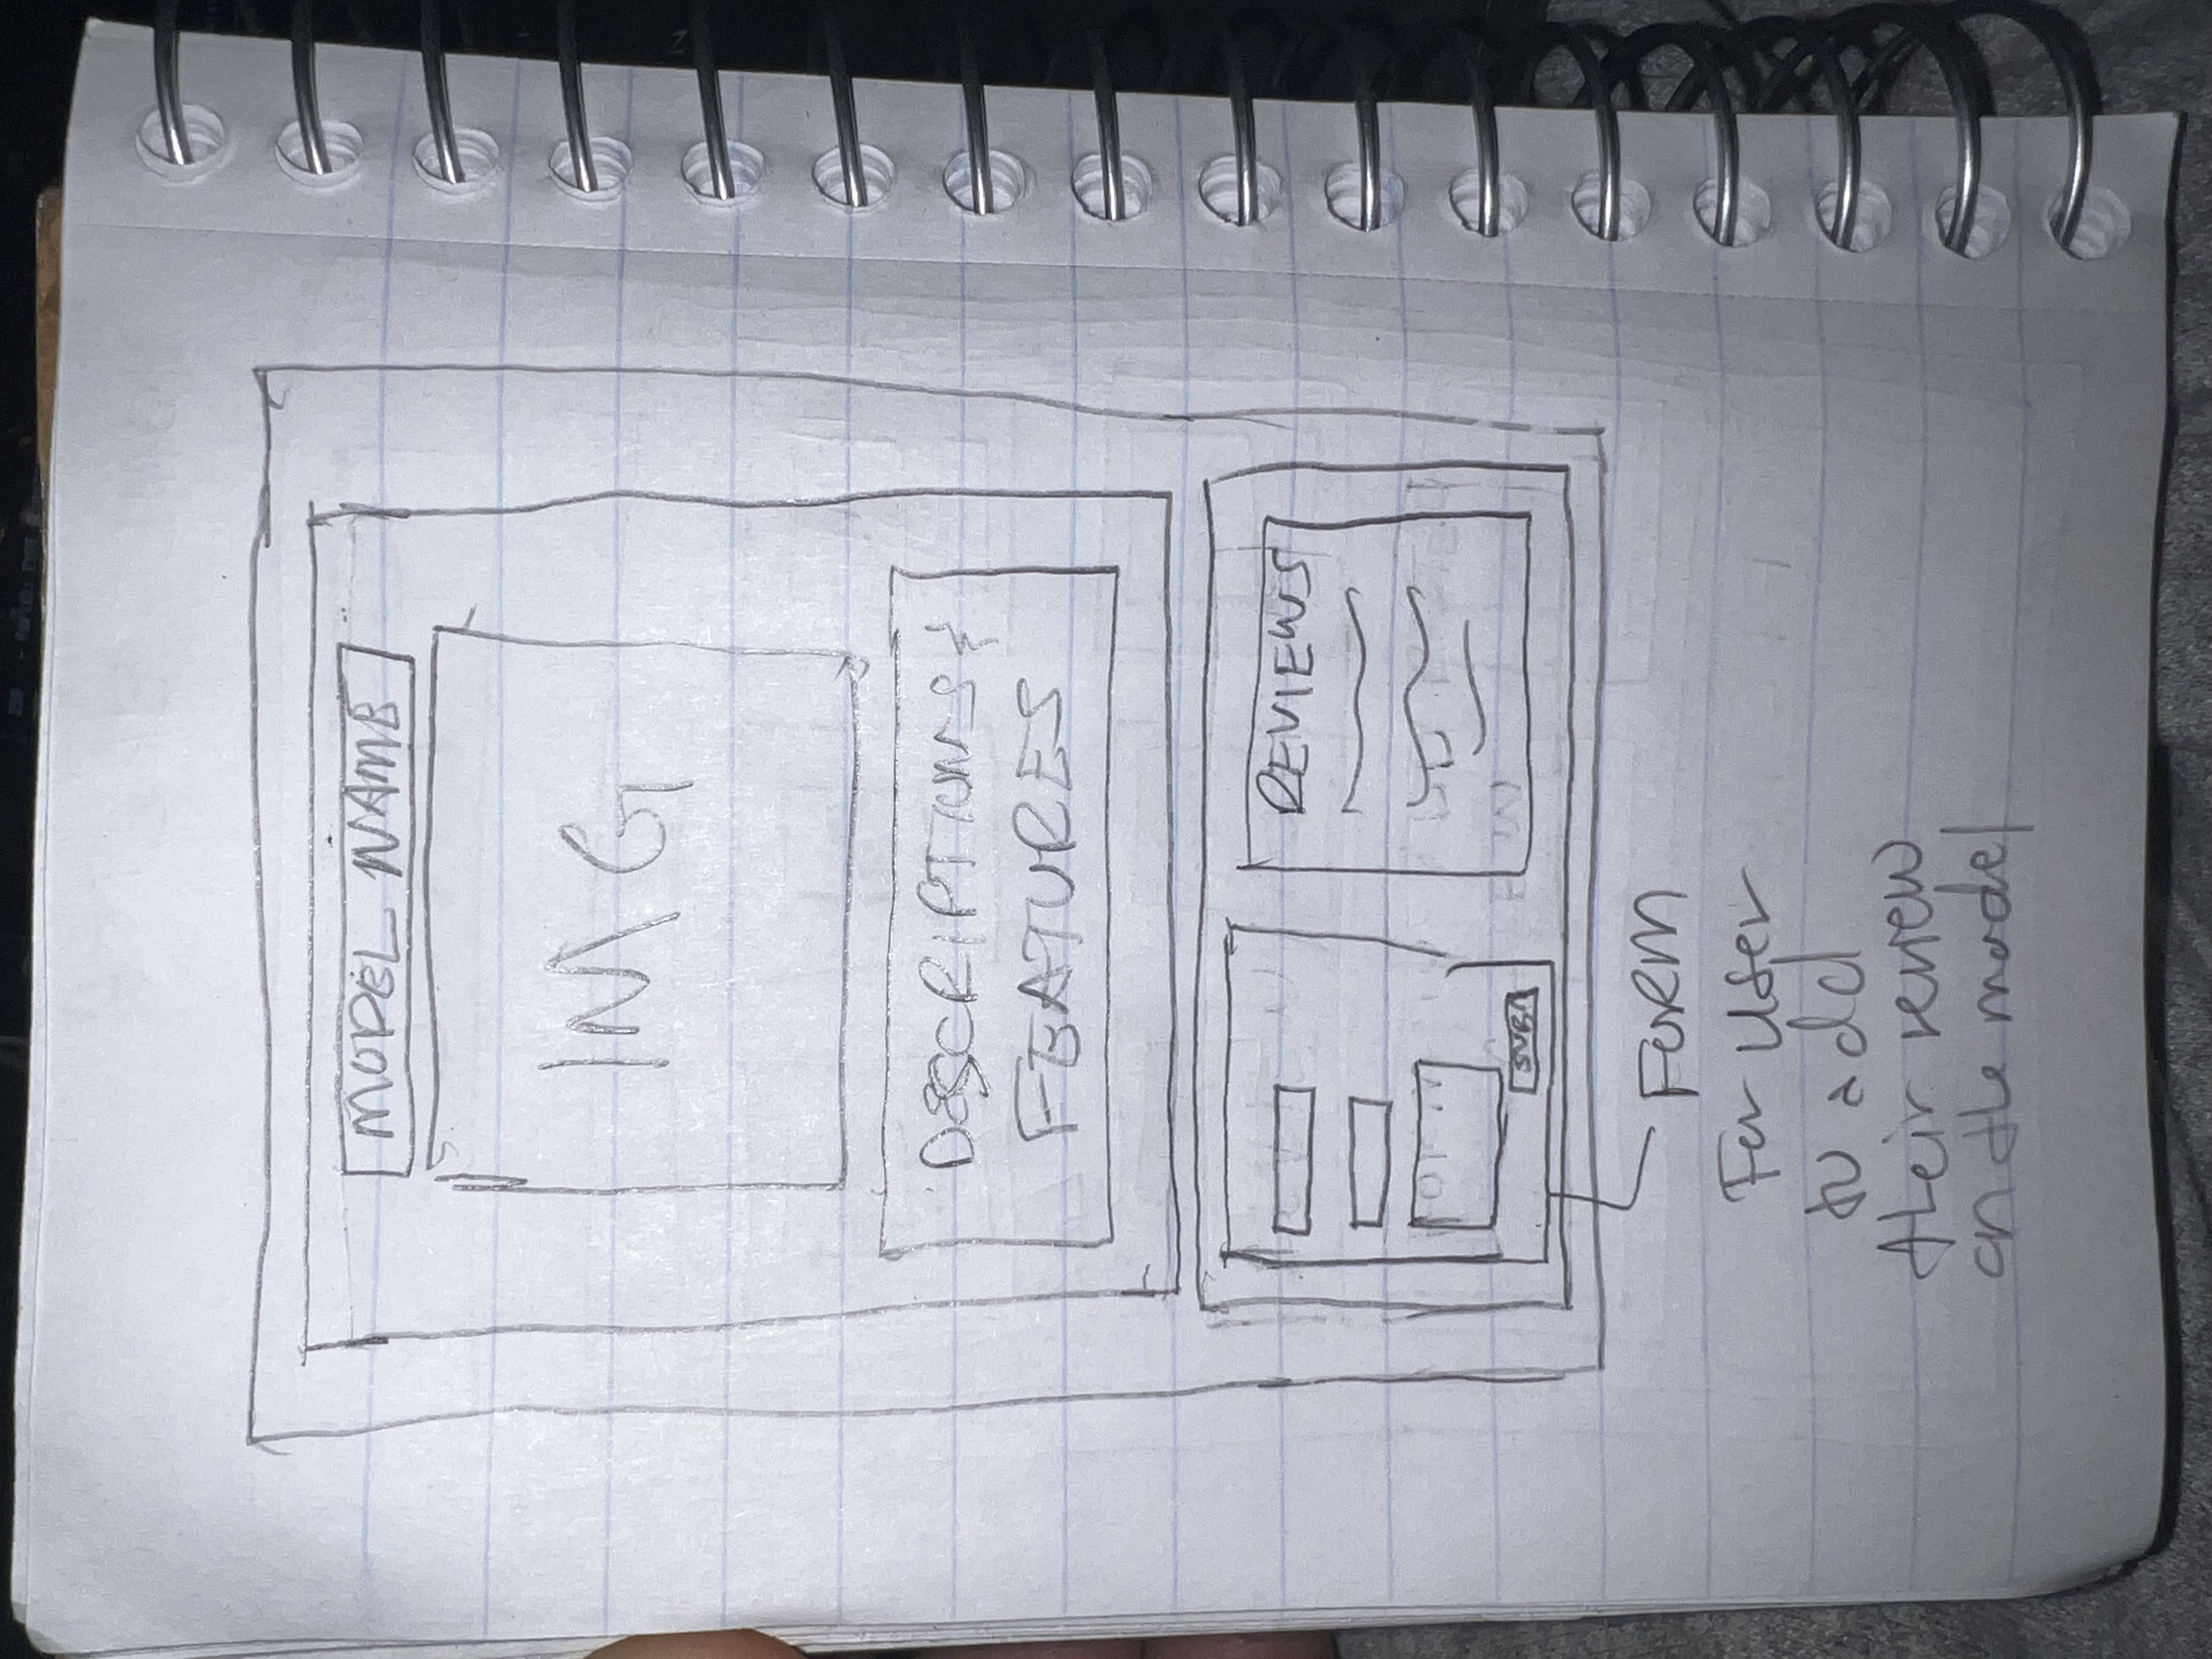 MODEL NAME
IMG
DESCRIPTIONS &
FEATURES
REVIEWS
SUBM
FORM
For user
to add
their review
on the model